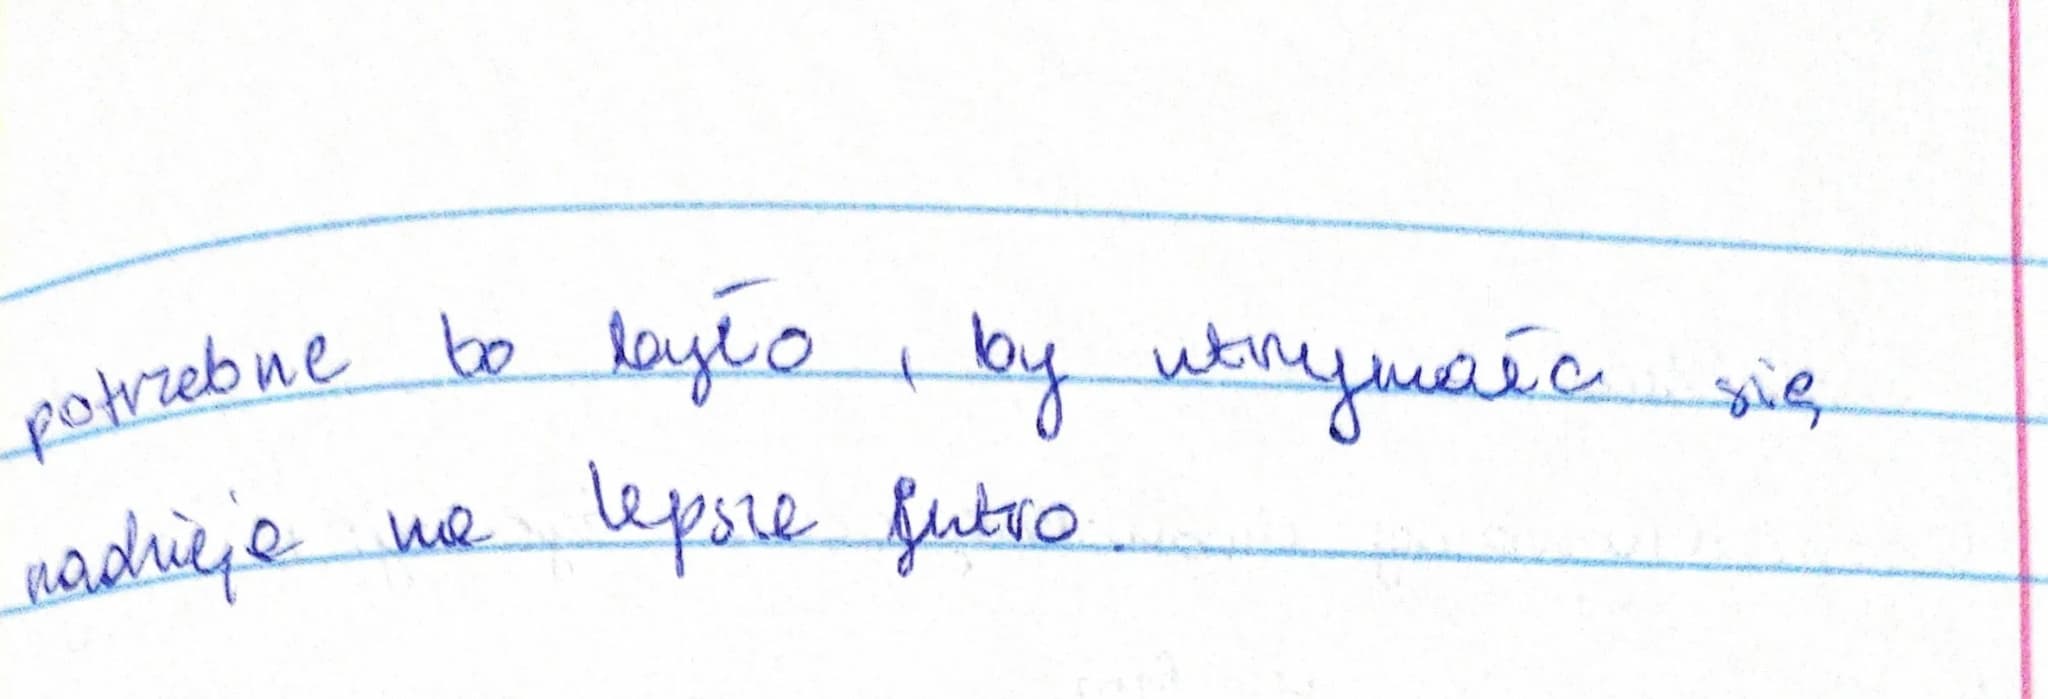 potrzebne to było, by utrzymała się
nadzieja na lepsze jutro.